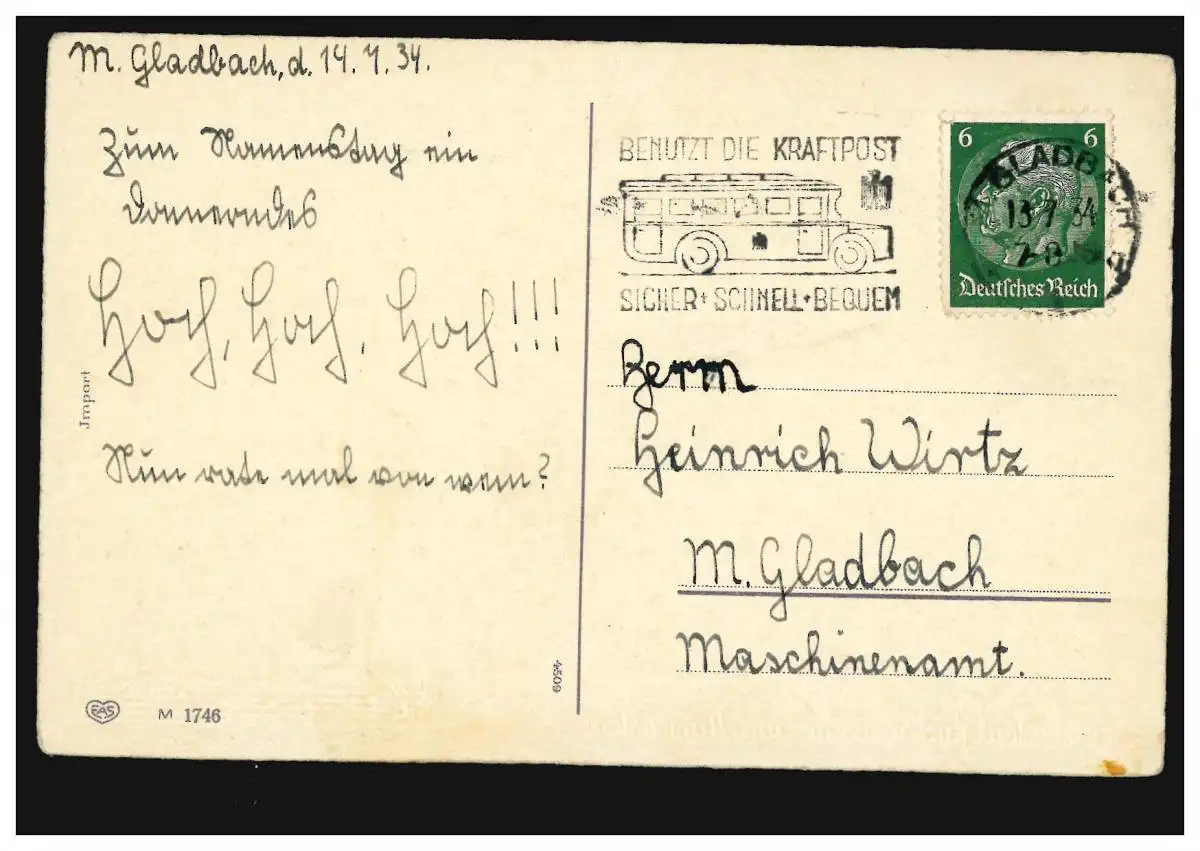 M. Gladbach, d. 14. 7. 34.
Zum Namenstag ein
donnerndes
Hoch, Hoch, Hoch!!!
Nun rate mal von wem?
Import
EAS
M 1746
4509
BENUTZT DIE KRAFTPOST
SICHER + SCHNELL + BEQUEM
6 6
Deutsches Reich
GLADBACH
13.7.34
7-8
Herrn
Heinrich Wirtz
M. Gladbach
Maschinenamt.